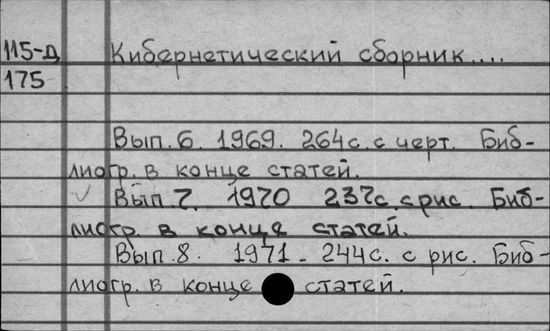 115-Д Кибернетический сборник....
175
Вып. 6. 1969. 264с. с черт. Биб-
лиогр. в конце статей.
Вып. 7. 1970 237с с рис. Биб-
лиогр. в конце статей.
Вып. 8. 1971 - 244с. с рис. Биб-
лиогр. в конце статей.